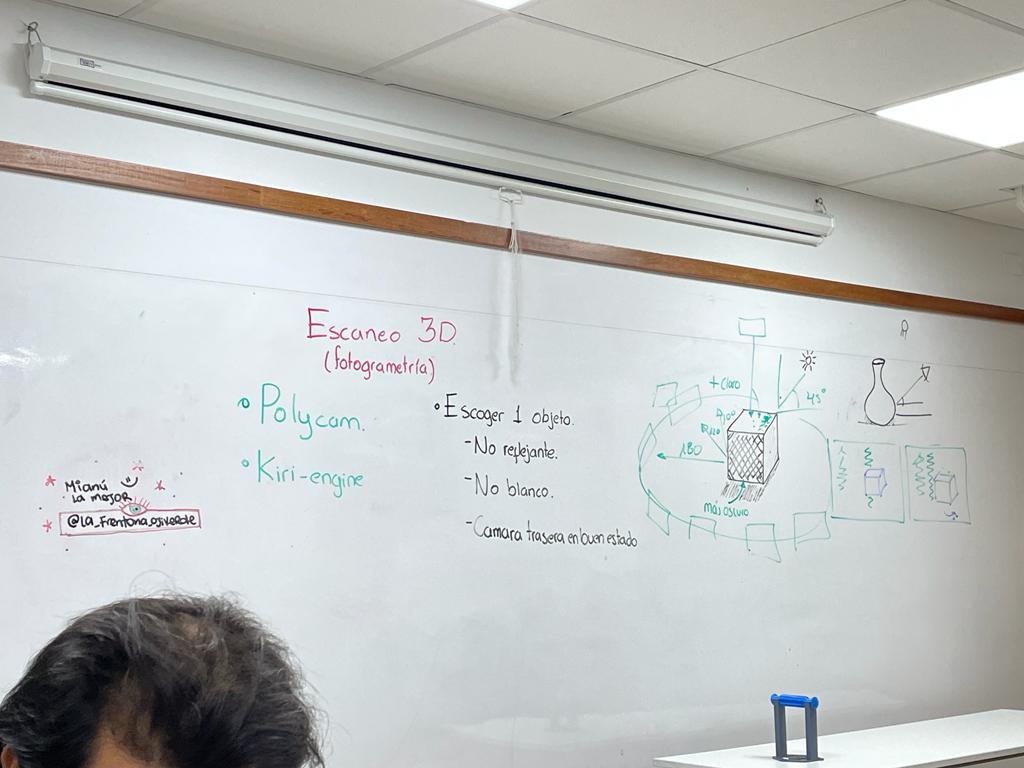 Escaneo 3D.
(fotogrametría)
Polycam.
Kiri-engine
Escoger 1 objeto.
-No reflejante.
-No blanco.
-Camara trasera en buen estado
Mianú
La mejor
+Claro
45°
180
más oscuro